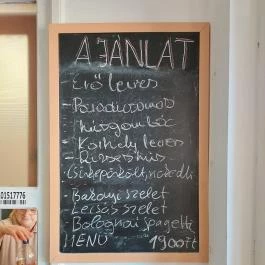 AJÁNLAT
- Erő leves
- Paradicsomos
húsgombóc
- Karhély leves
- Rizseshús
Csirkepörkölt, nokedli
- Bakonyi szelet
Lecsós szelet
Bolognai spagetti
MENÜ 1900 Ft
01517776